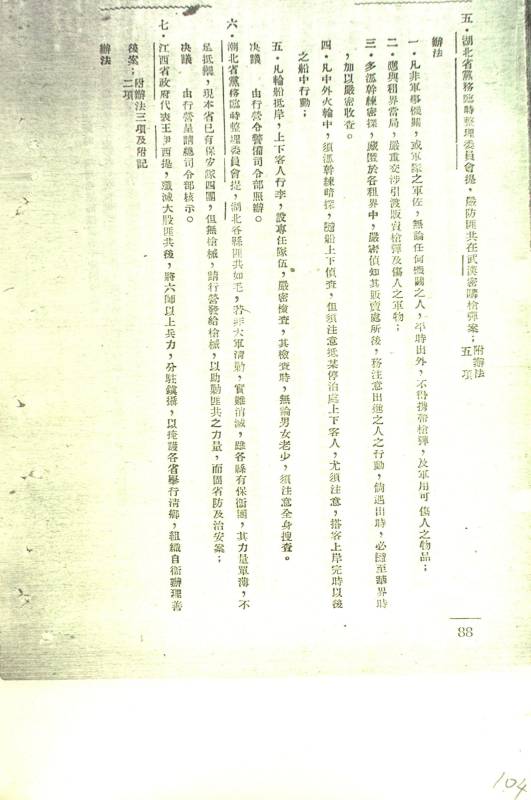 五．湖北省黨務臨時整理委員會提，嚴防匪共在武漢密購槍彈案；附辦法五項
辦法
一．凡非軍事機關，或軍隊之軍佐，無論任何機關之人，平時出外，不得攜帶槍彈，及軍用可傷人之物品；
二．應與租界當局，嚴重交涉引渡販賣槍彈及傷人之軍物；
三．多派幹練密探，藏匿於各租界中，嚴密偵知其販賣處所後，務注意出進之人之行動，倘遇出時，必隨至華界時
，加以嚴密收查。
四．凡中外火輪中，須派幹練暗探，隨船上下偵查，但須注意抵某停泊處上下客人，尤須注意，搭客上岸完時以後
之船中行動；
五．凡輪船抵岸，上下客人行李，設專任隊伍，嚴密檢查，其檢查時，無論男女老少，須注意全身搜查。
决議　由行營令警備司令部照辦。
六．湖北省黨務臨時整理委員會提，湖北各縣匪共如毛，若非大軍清勦，實難消滅，雖各縣有保衛團，其力量單薄，不
足抵禦，現本省已有保安隊四團，但無槍械，請行營發給槍械，以助勦匪共之力量，而固省防及治安案；
决議　由行營呈請總司令部核示。
七．江西省政府代表王伊西提，殲滅大股匪共後，將六師以上兵力，分駐鎮攝，以掩護各省舉行清鄉，組織自衛辦理善
後案；附辦法三項及附記二項
辦法
88
104